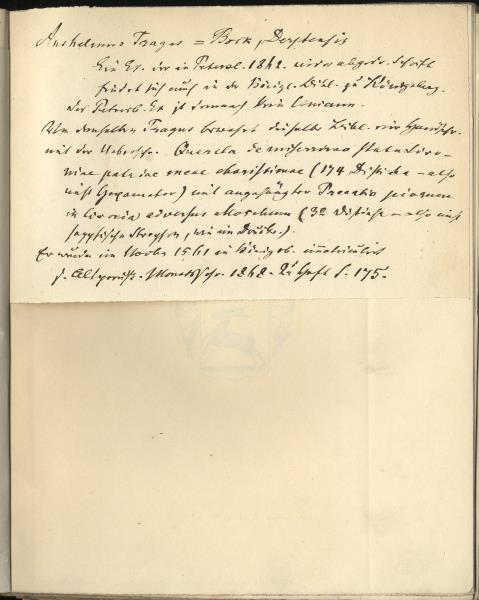 Anshelmus Tragus = Bock, Derptensis
Ein Ex. der in Petersb. 1842. wieder abgedr. Schrift
findet sich auch in der Königl. Bibl. zu Königsberg.
Das Petersb. Ex ist demnach kein Unicum.
Von demselben Tragus bewahrt dieselbe Bibl. eine Handschr.
mit der Ueberschr. Querela de miserrimo statu Livo-
niae patriae meae charissimae (174 Disticha - also
nicht Hexameter) mit angehängter Precatio piorum
in Livonia adversus Moschum (32 Distichen - also nicht
sapphische Strophen, wie im Drucke.)
Er wurde im 1561 in Königsb. immatriculirt
s. Altpreuß. Monatsschr. Heft S. 175.